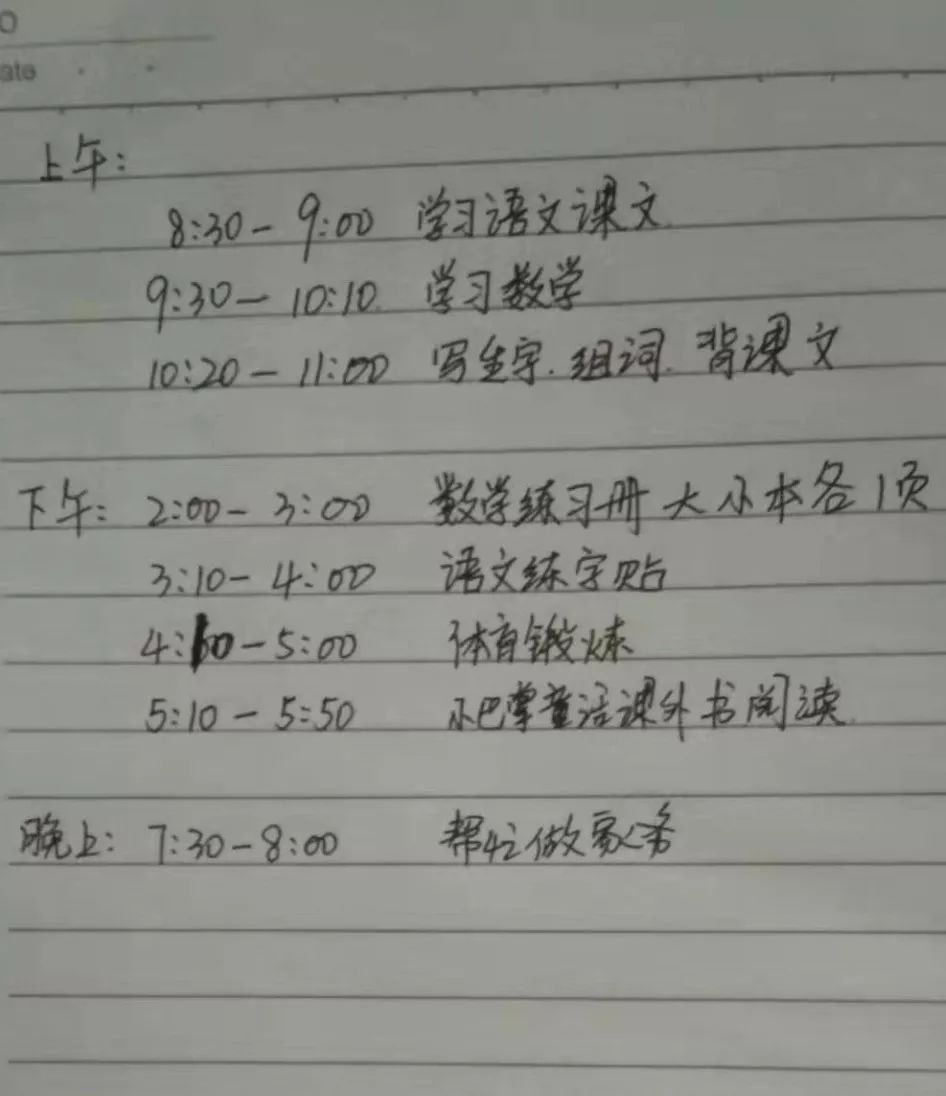 O
ate
上午：
8:30－9:00 学习语文课文.
9:30－10:10. 学习数学
10:20－11:00 写生字.组词.背课文
下午：2:00－3:00 数学练习册大小本各1页
3:10－4:00 语文练字贴
4:10－5:00 体育锻炼
5:10－5:50 小巴掌童话课外书阅读.
晚上：7:30－8:00 帮忙做家务